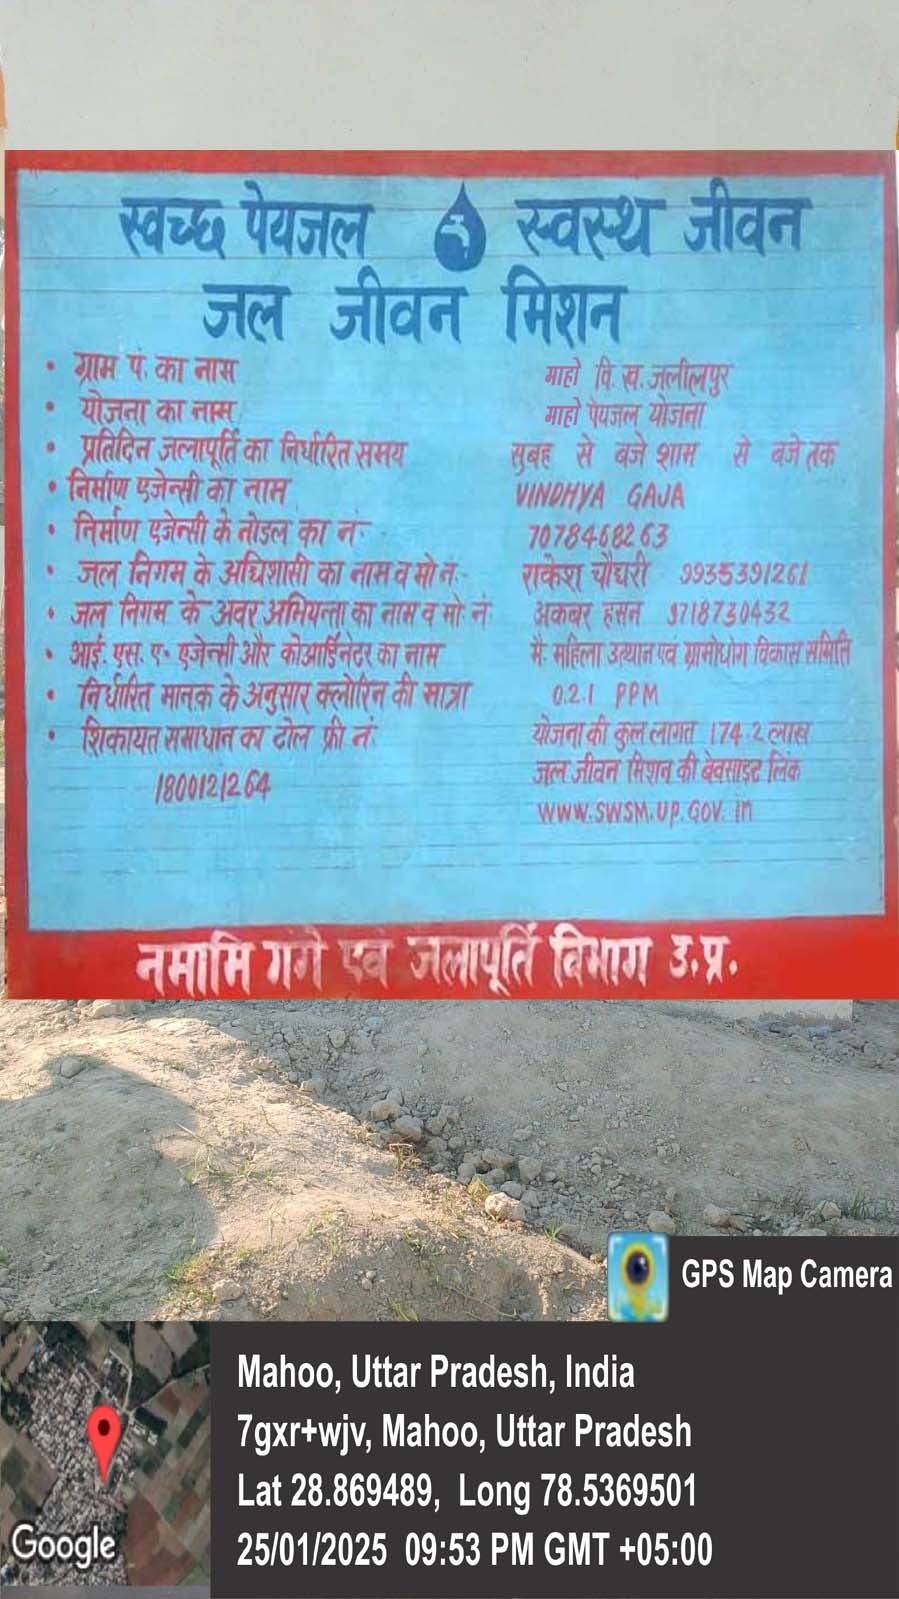 स्वच्छ पेयजल स्वस्थ जीवन
जल जीवन मिशन
• ग्राम पं. का नाम माहो वि. ख. जलीलपुर
• योजना का नाम माहो पेयजल योजना
• प्रतिदिन जलापूर्ति का निर्धारित समय सुबह से बजे शाम से बजे तक
• निर्माण एजेन्सी का नाम VINDHYA GAJA
• निर्माण एजेन्सी के नोडल का नं. 7078468263
• जल निगम के अधिशासी का नाम व मो न. राकेश चौधरी 9935391261
• जल निगम के अवर अभियन्ता का नाम व मो. नं. अकबर हसन 9718730432
• आई. एस. ए. एजेन्सी और कोआर्डिनेटर का नाम मै. महिला उत्थान एवं ग्रामोधोग विकास समिति
• निर्धारित मानक के अनुसार क्लोरिन की मात्रा 0.2.1 PPM
• शिकायत समाधान का टोल फ्री नं. योजना की कुल लागत 174.2 लाख
1800121264 जल जीवन मिशन की बेवसाइट लिंक
WWW.SWSM.UP.GOV.in
नमामि गंगे एवं जलापूर्ति विभाग उ.प्र.
GPS Map Camera
Mahoo, Uttar Pradesh, India
7gxr+wjv, Mahoo, Uttar Pradesh
Lat 28.869489, Long 78.5369501
25/01/2025 09:53 PM GMT +05:00
Google